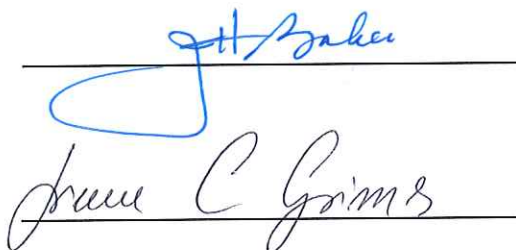 JH Baker
Irene C Grimes